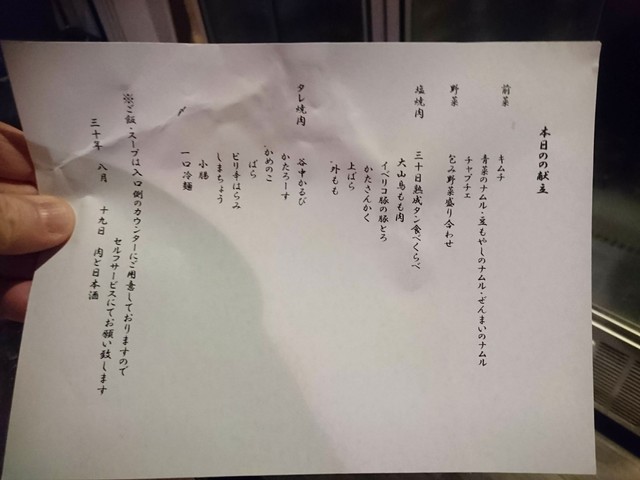 本日のの献立
前菜
キムチ
青菜のナムル・豆もやしのナムル・ぜんまいのナムル
チャプチェ
野菜
包み野菜盛り合わせ
塩焼肉
三十日熟成タン食べくらべ
大山鳥もも肉
イベリコ豚の豚とろ
かたさんかく
上ばら
外もも
タレ焼肉
谷中かるび
かたろーす
かめのこ
ばら
ピリ辛はらみ
しまちょう
小腸
一口冷麺
※ご飯・スープは入口側のカウンターにご用意しておりますので
セルフサービスにてお願い致します
三十年 八月 十九日 肉と日本酒